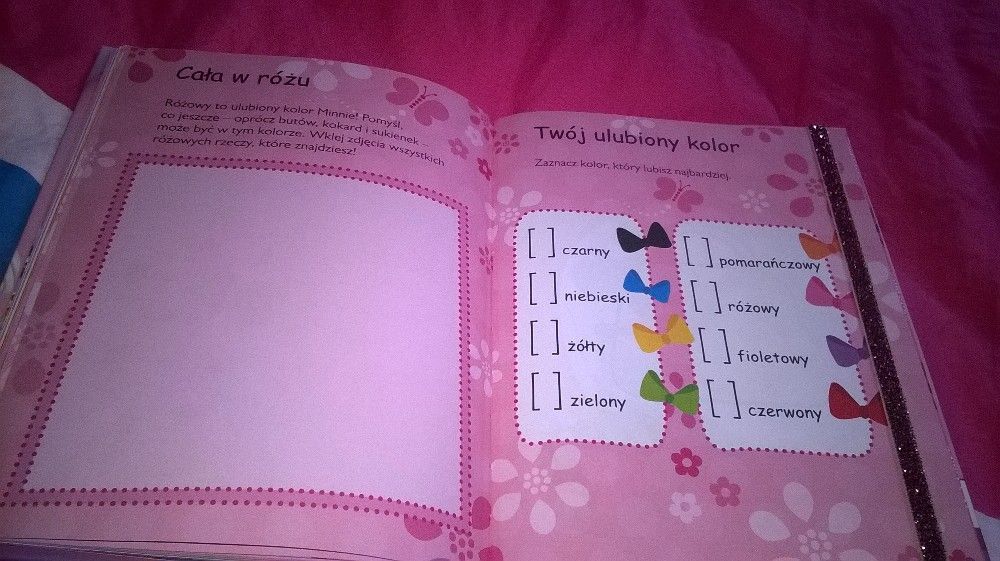 Cała w różu
Różowy to ulubiony kolor Minnie! Pomyśl,
co jeszcze – oprócz butów, kokard i sukienek –
może być w tym kolorze. Wklej zdjęcia wszystkich
różowych rzeczy, które znajdziesz!
Twój ulubiony kolor
Zaznacz kolor, który lubisz najbardziej.
[ ] czarny
[ ] niebieski
[ ] żółty
[ ] zielony
[ ] pomarańczowy
[ ] różowy
[ ] fioletowy
[ ] czerwony